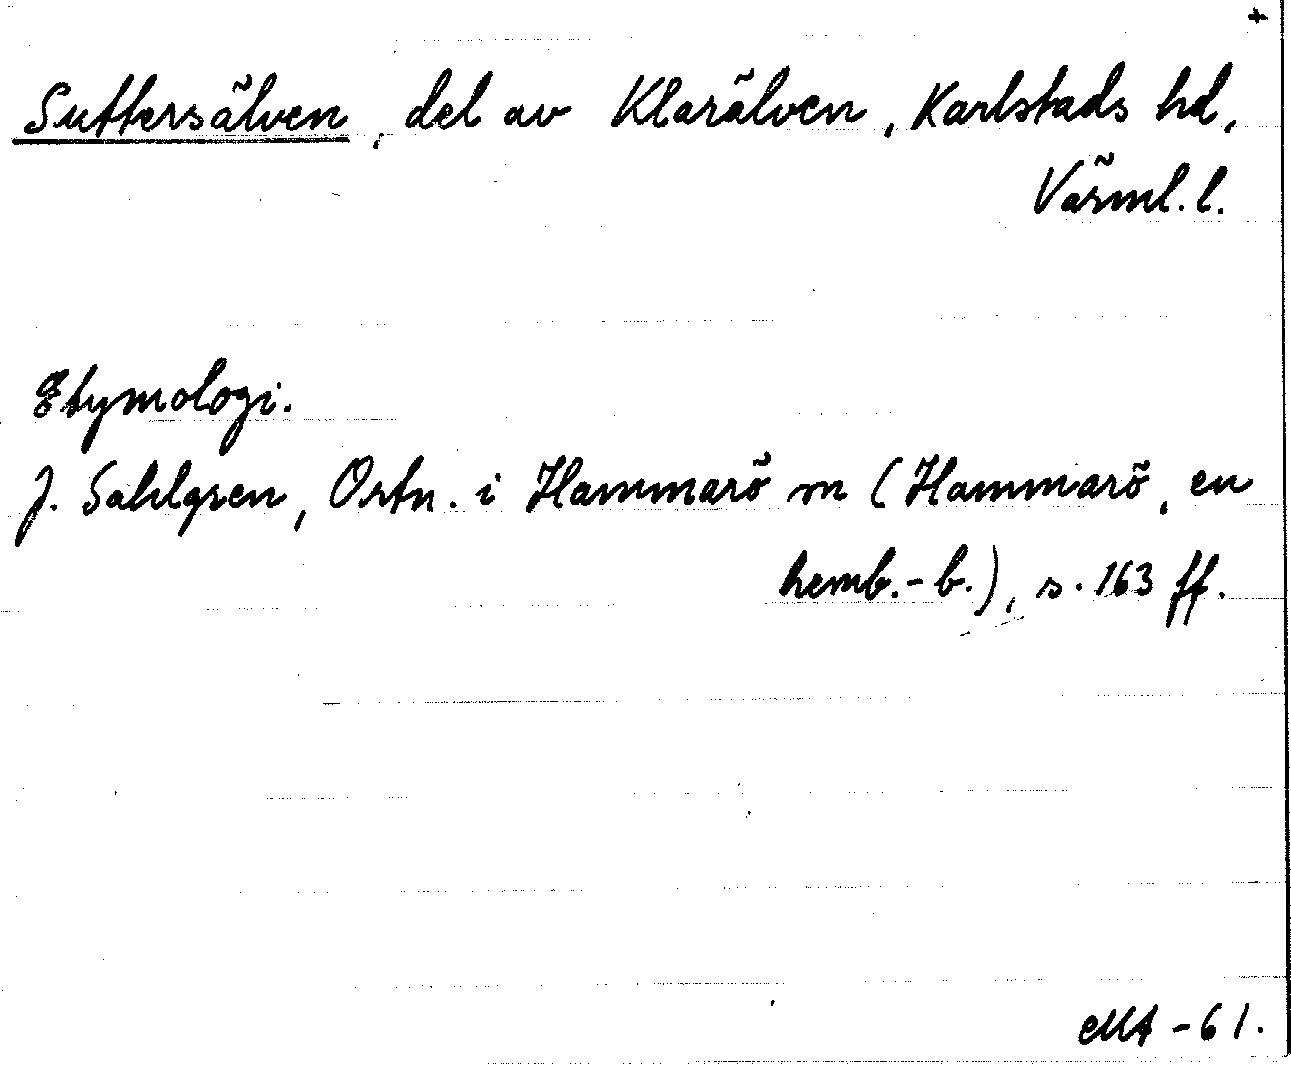 +
Suttersälven, del av Klarälven, Karlstads hd,
Värml. l.
Etymologi.
J. Sahlgren, Ortn. i Hammarö sn (Hammarö, en
hemb.-b.), s. 163 ff.
MA -61.